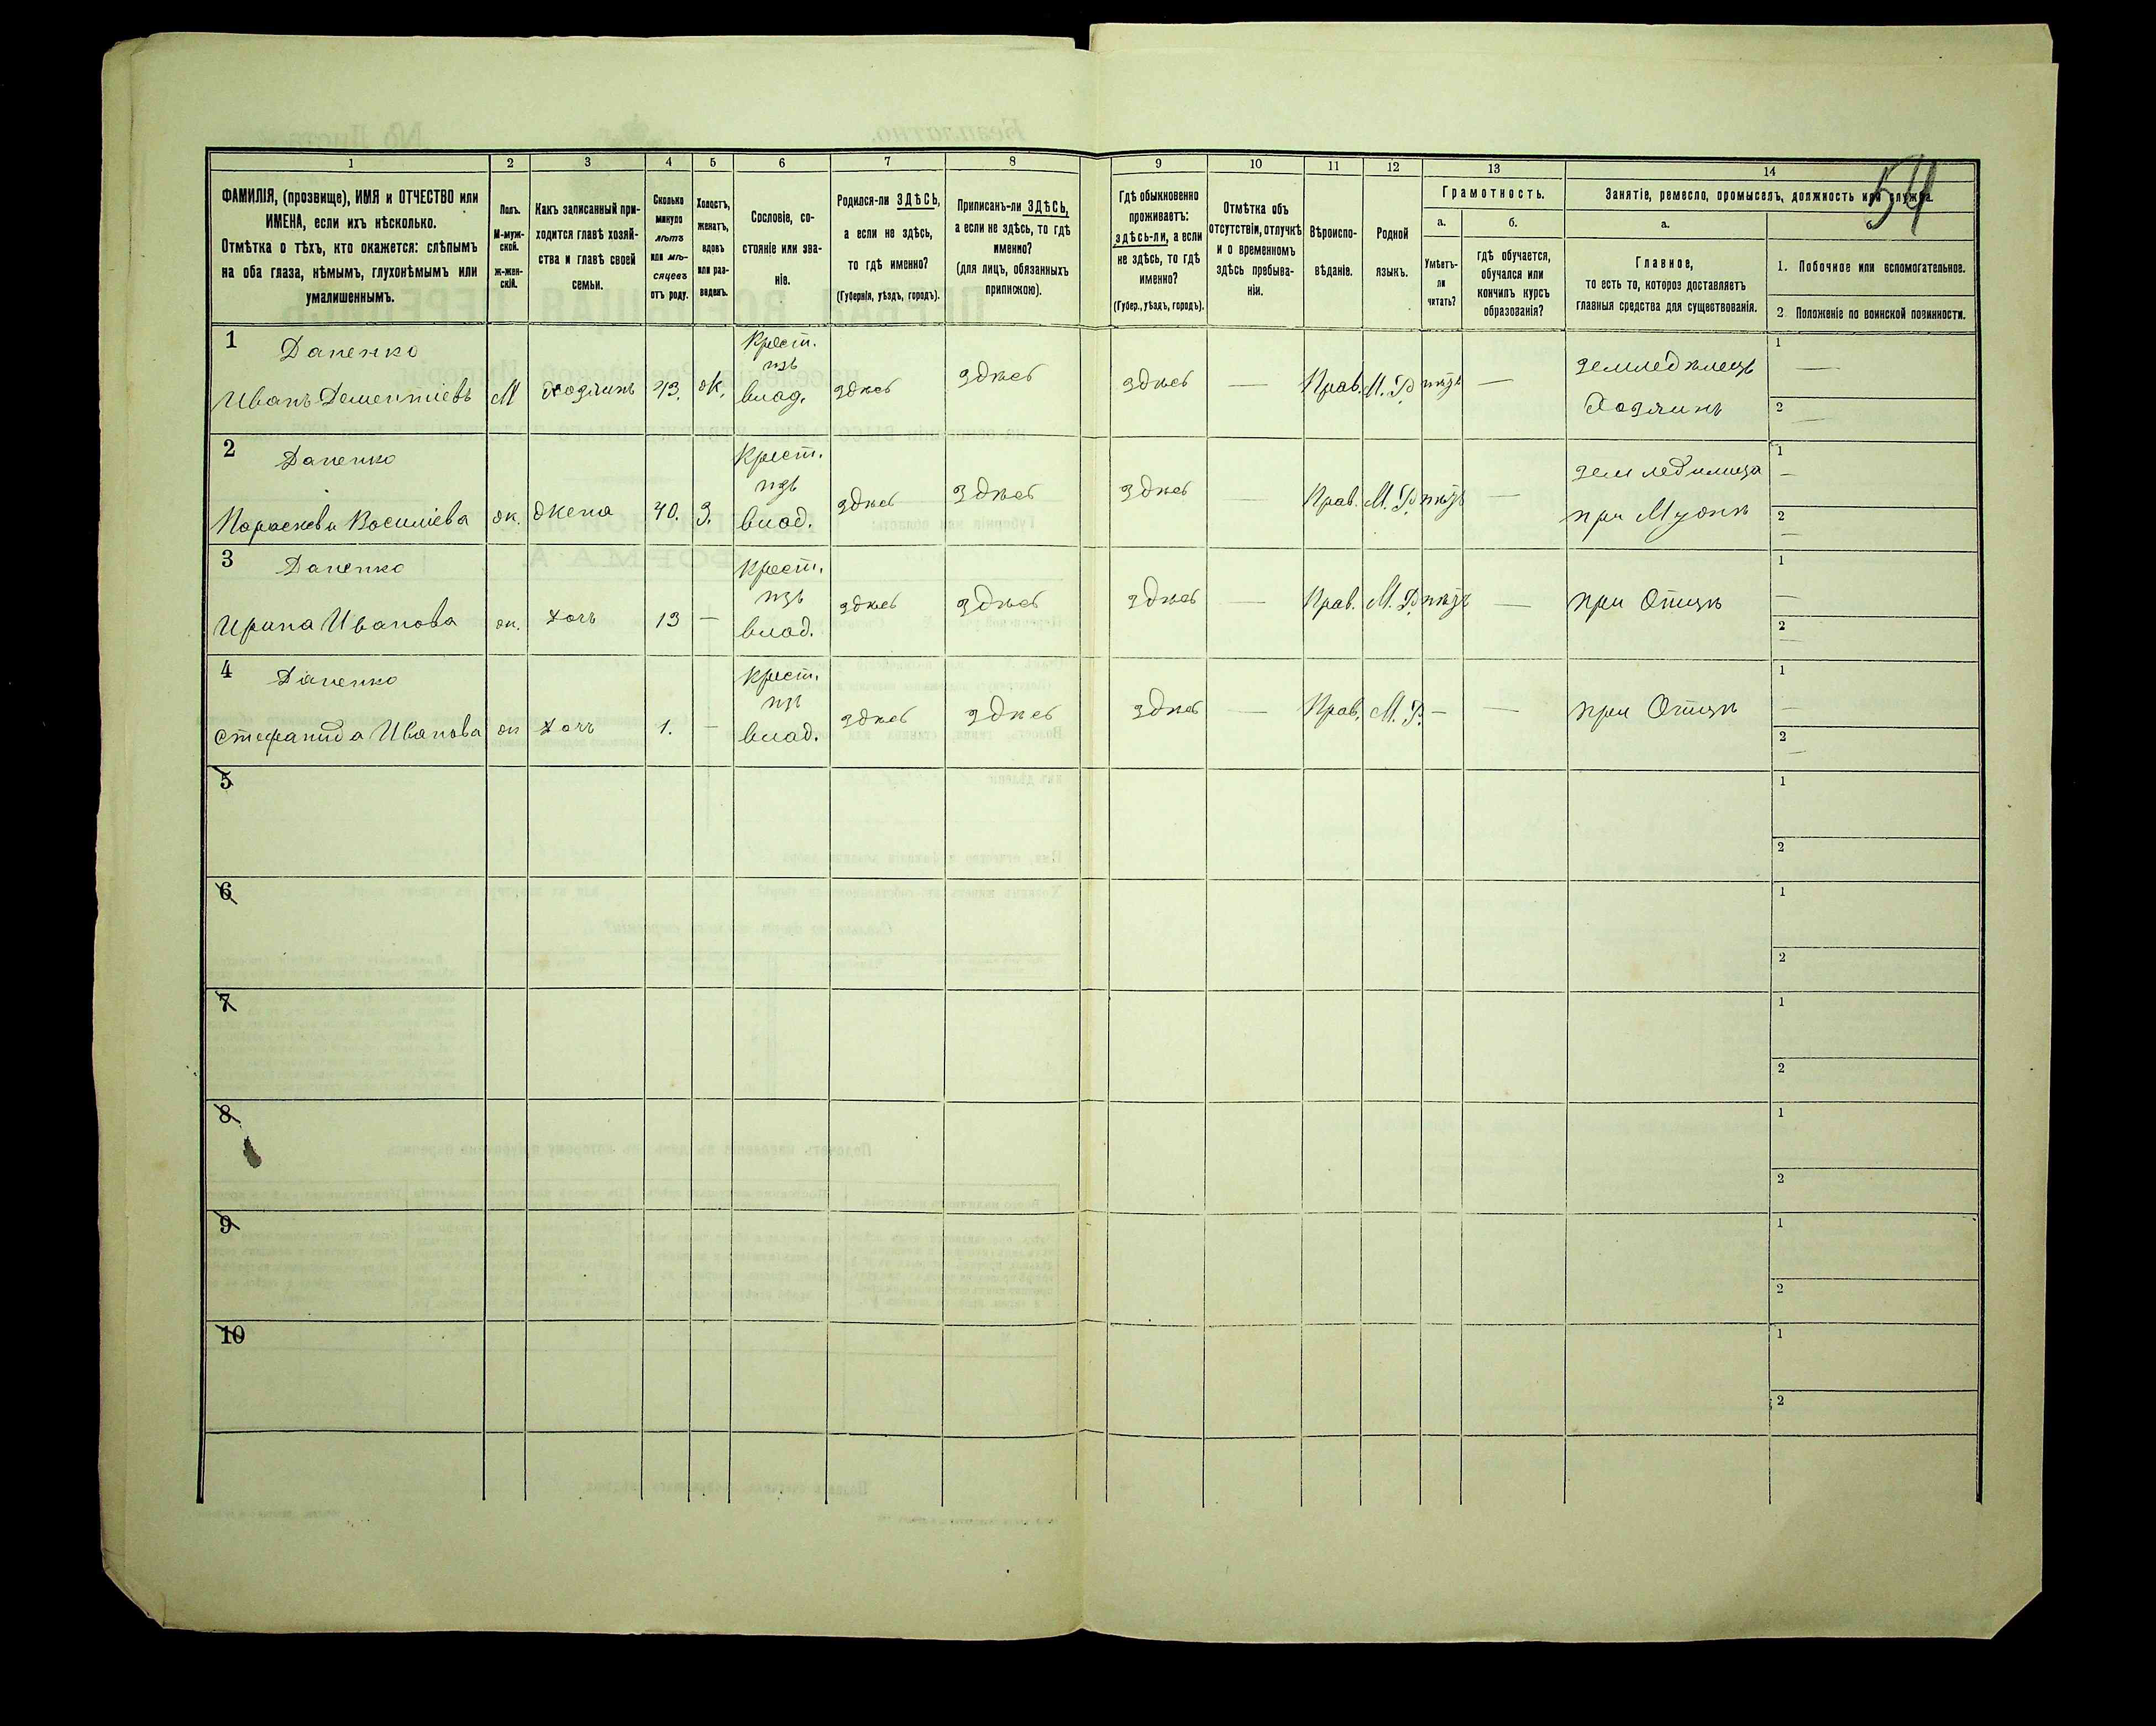 54
1 2 3 4 5 6 7 8 9 10 11 12 13 14
ФАМИЛІЯ, (прозвище), ИМЯ и ОТЧЕСТВО или
ИМЕНА, если ихъ нѣсколько.
Отмѣтка о тѣхъ, кто окажется: слѣпымъ
на оба глаза, нѣмымъ, глухонѣмымъ или
умалишеннымъ.
Полъ.
М-муж-
ской.
ж-жен-
скій.
Какъ записанный при-
ходится главѣ хозяй-
ства и главѣ своей
семьи.
Сколько
минуло
лѣтъ
или мѣ-
сяцевъ
отъ роду.
Холостъ,
женатъ,
вдовъ
или раз-
веденъ.
Сословіе, со-
стояніе или зва-
ніе.
Родился-ли ЗДѢСЬ,
а если не здѣсь,
то гдѣ именно?
(Губернія, уѣздъ, городъ).
Приписанъ-ли ЗДѢСЬ,
а если не здѣсь, то гдѣ
именно?
(для лицъ, обязанныхъ
припискою).
Гдѣ обыкновенно
проживаетъ:
здѣсь-ли, а если
не здѣсь, то гдѣ
именно?
(Губер., уѣздъ, городъ).
Отмѣтка объ
отсутствіи, отлучкѣ
и о временномъ
здѣсь пребыва-
ніи.
Вѣроиспо-
вѣданіе.
Родной
языкъ.
Грамотность.
а.
Умѣетъ-
ли
читать?
б.
гдѣ обучается,
обучался или
кончилъ курсъ
образованія?
Занятіе, ремесло, промыселъ, должность или служба.
а.
Главное,
то есть то, которое доставляетъ
главныя средства для существованія.
1. Побочное или вспомогательное.
2. Положеніе по воинской повинности.
1 Даценко Крест. 1
изъ здѣсь земледѣлецъ —
Иванъ Дементіевъ М хозяинъ 43. ж. влад. здѣсь здѣсь — Прав. М. Р. нѣтъ — Хозяинъ 2 —
2 Даценко Крест. 1
изъ здѣсь здѣсь земледѣлица —
Параскева Василіева ж. жена 40. З. влад. здѣсь — Прав. М. Р. нѣтъ — при Мужѣ 2 —
3 Даценко Крест. 1
изъ здѣсь здѣсь здѣсь —
Ирина Иванова ж. дочь 13 — влад. — Прав. М. Р. нѣтъ — при Отцѣ 2 —
4 Даценко Крест. 1
изъ здѣсь здѣсь —
Стефанида Иванова ж дочь 1. — влад. здѣсь — Прав. М. Р. — — при Отцѣ 2 —
5 1
2
6 1
2
7 1
2
8 1
2
9 1
2
10 1
2